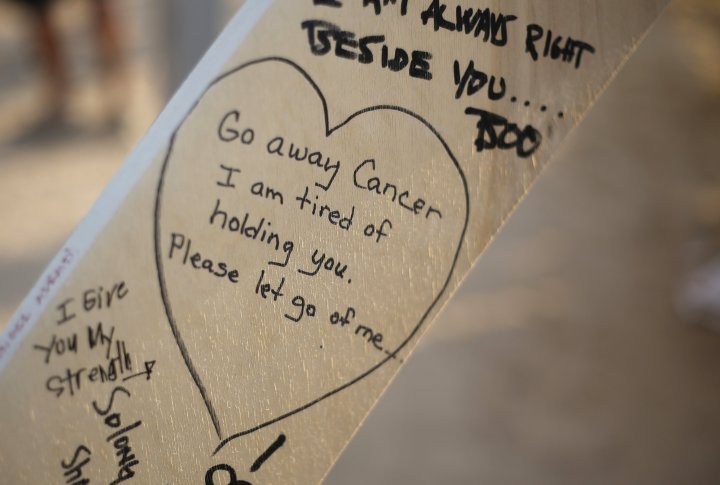 I AM ALWAYS RIGHT
BESIDE YOU....
BOO
Go away Cancer
I am tired of
holding you.
Please let go of me...
I Give
You My
Strength
Solong